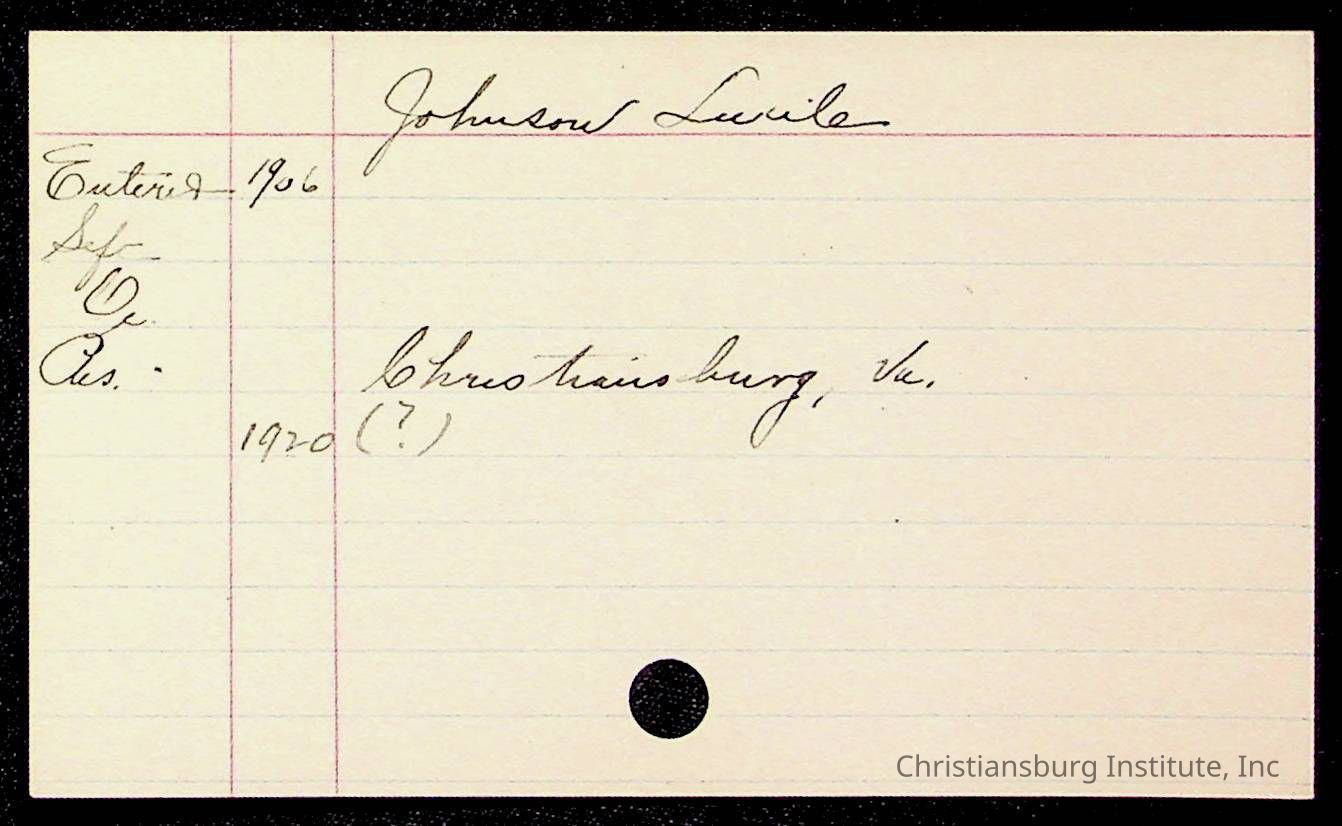 Johnson Lucile
Entered 1906
Res. - Christiansburg, Va.
1920 (?)
Christiansburg Institute, Inc